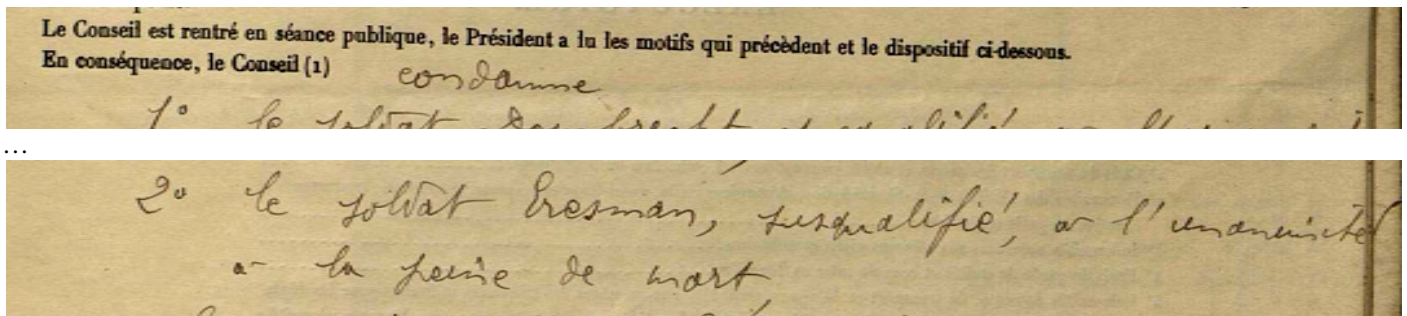 Le Conseil est rentré en séance publique, le Président a lu les motifs qui précèdent et le dispositif ci-dessous.
En conséquence, le Conseil (1) condamne
1° le soldat susqualifié
...
2° le soldat Eresman, susqualifié, a l'unanimité
a la peine de mort,